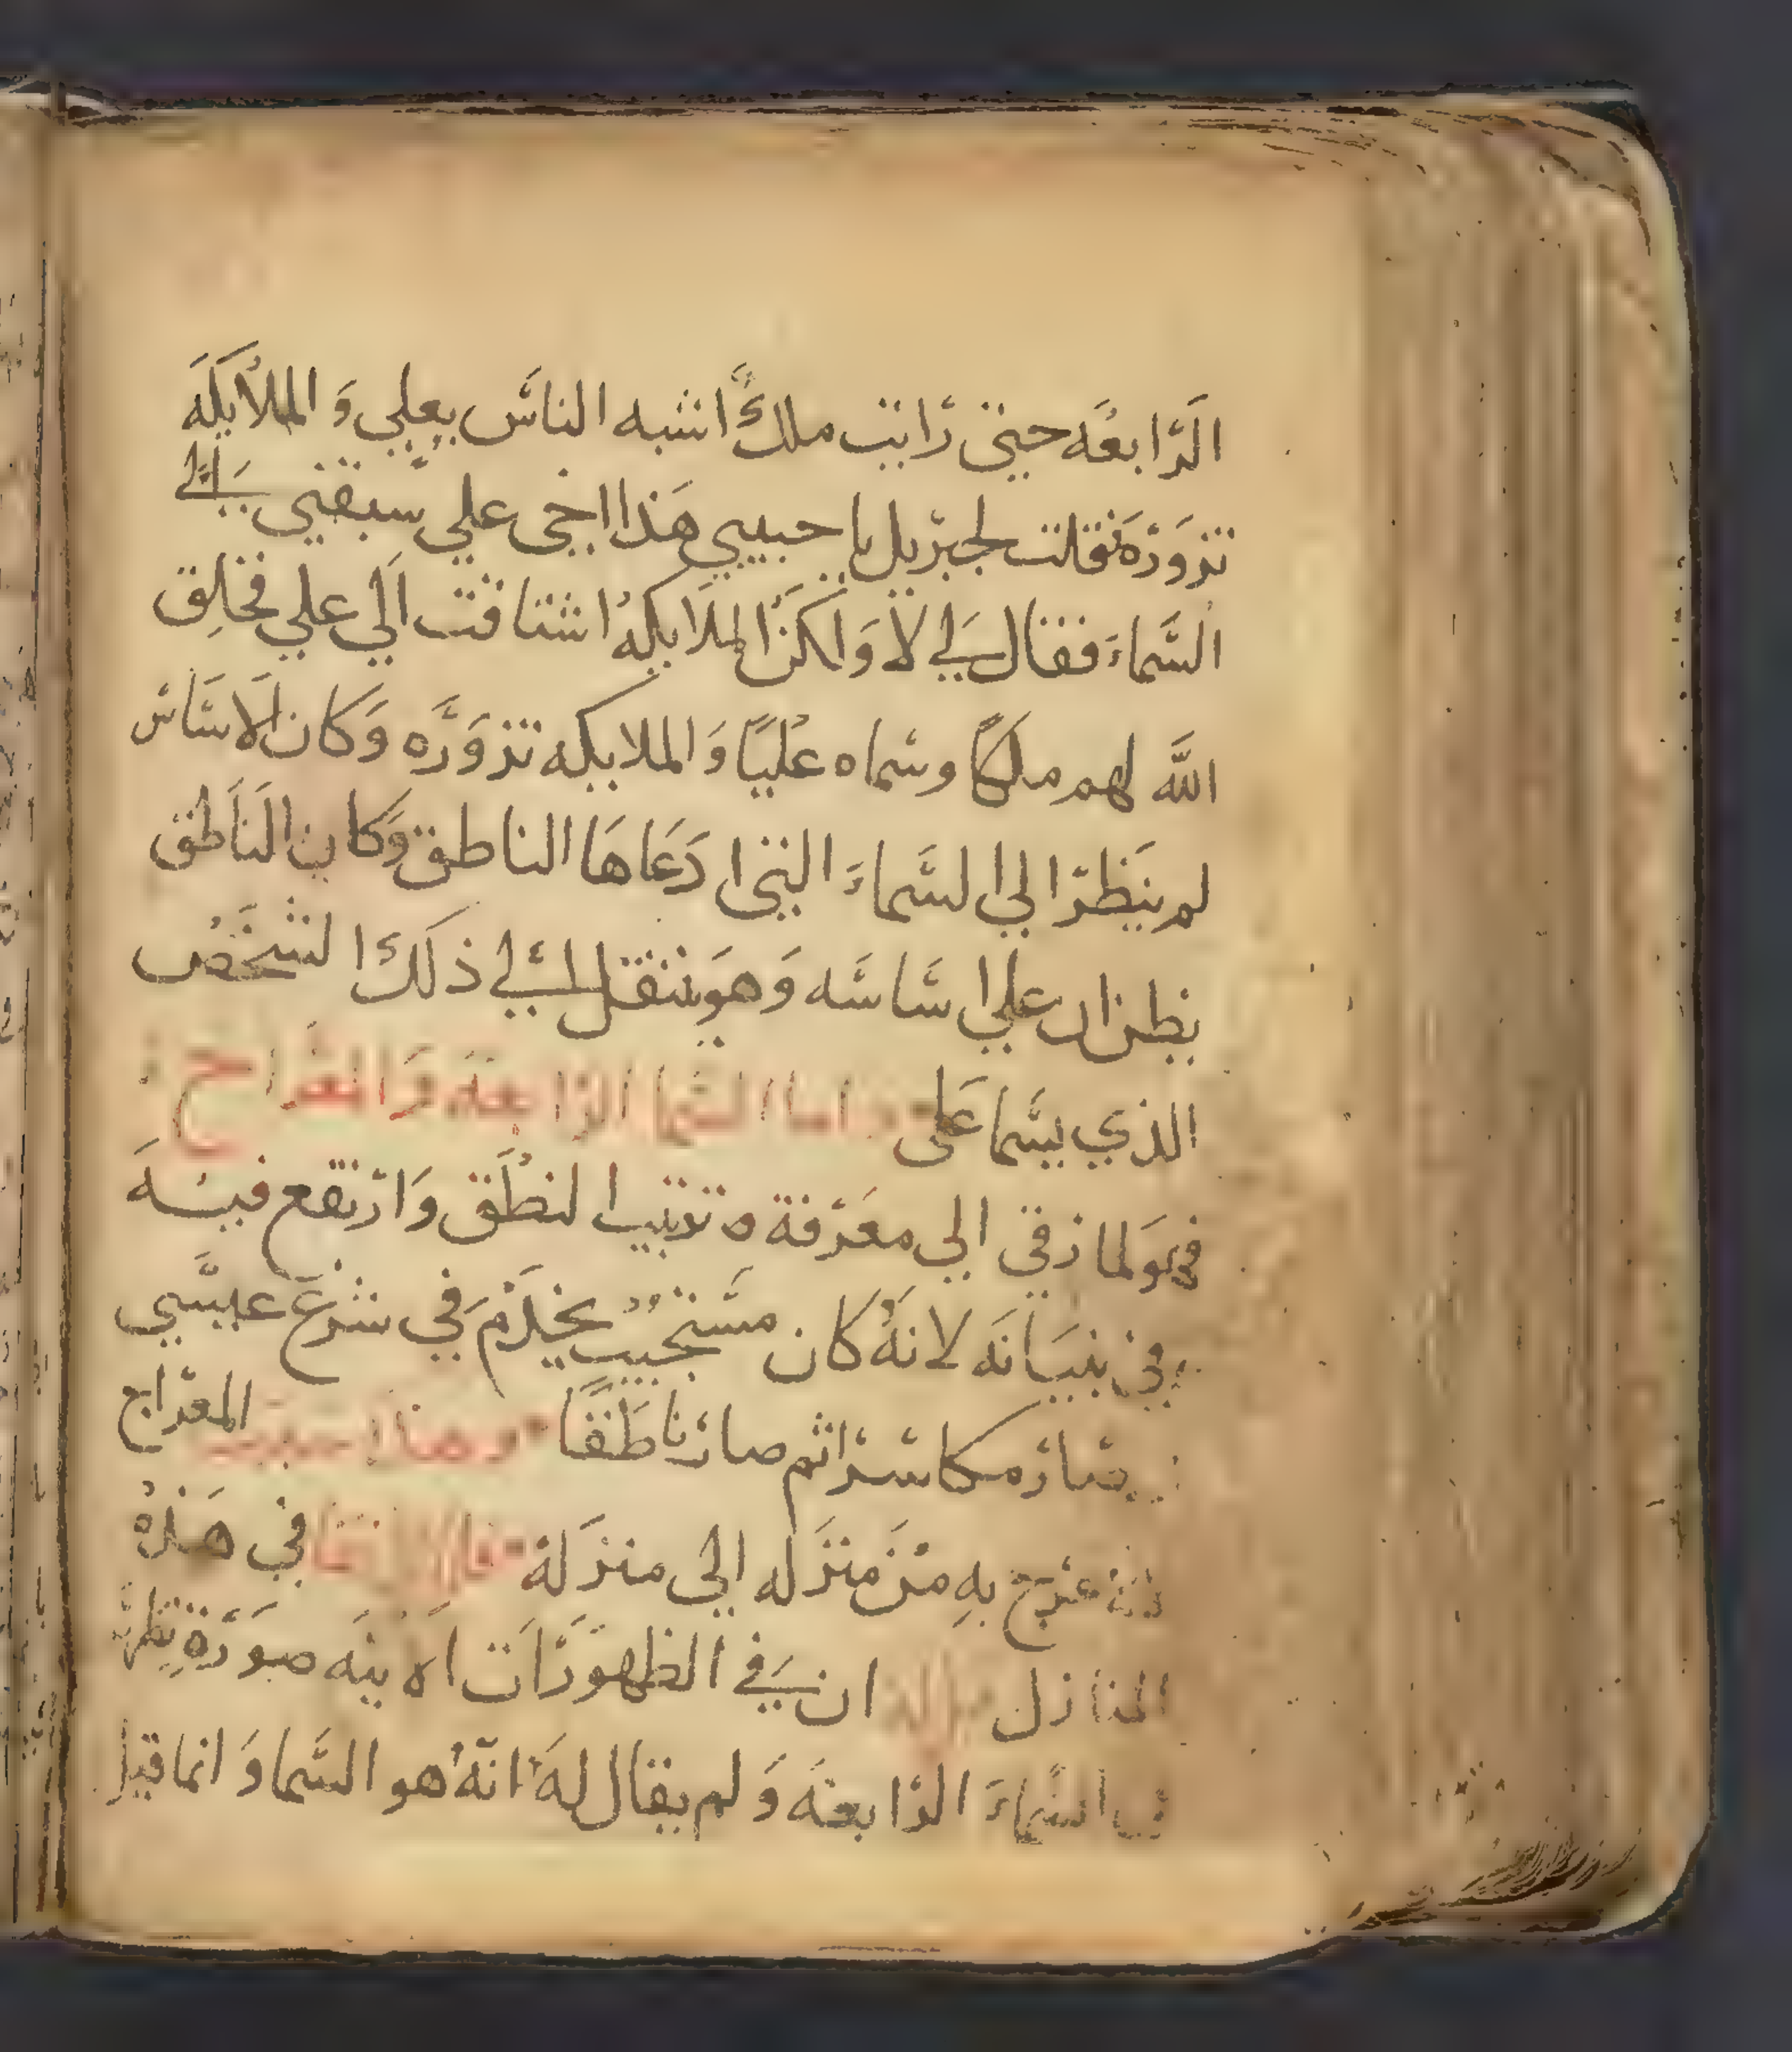 الرابعه حيث رايت ملكًا اشبه الناس بعلي وَ الملايكه
تزوره فقلت لجبريل يا حبيبي هذا اخي علي سبقني الى
السماءَ فقال لي لا وَلكن الملايكه اشتاقت الي علي فخلق
الله لهم ملكًا وسماه عليًا وَ الملايكه تزوره وَكان الاساس
لم ينظر الي السماءَ التي ادعاها الناطق وكان الناطق
يظن ان علي اساسه وَهو ينتقل الي ذلك الشخص
الذي يسما على واما السما الرابعه وَالمعراج
فهو لما رقي الي معرفة ترتيب النطق وَارتفع فيه
في بنيانه لانه كان مستجيب يخدم في شرع عيسي
صار مكاسرا ثم صار ناطقًا وهذا سبب المعراج
لانه عرج به من منزله الي منزلة فالارتقا في هذه
المنازل ان في الظهورات صورة
في السماءَ الرابعه وَلم يقال له انه هو السما وَ انما قيل